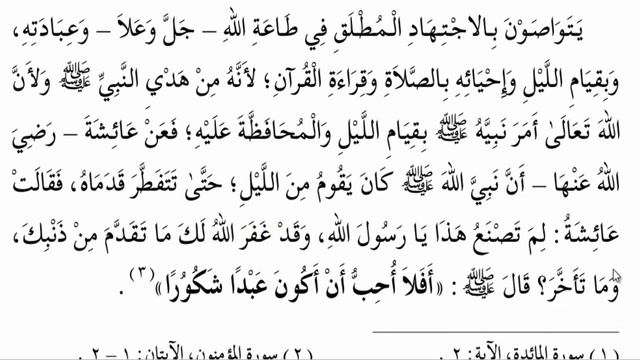 يَتَوَاصَوْنَ بِالاجْتِهَادِ الْمُطْلَقِ فِي طَاعَةِ اللهِ – جَلَّ وَعَلاَ – وَعِبَادَتِهِ،
وَبِقِيَامِ اللَّيْلِ وَإِحْيَائِهِ بِالصَّلاَةِ وَقِرَاءَةِ الْقُرْآنِ؛ لأَنَّهُ مِنْ هَدْيِ النَّبِيِّ ﷺ وَلأَنَّ
اللهَ تَعَالَىٰ أَمَرَ نَبِيَّهُ ﷺ بِقِيَامِ اللَّيْلِ وَالْمُحَافَظَةِ عَلَيْهِ؛ فَعَنْ عَائِشَةَ – رَضِيَ
اللهُ عَنْهَا – أَنَّ نَبِيَّ اللهَ ﷺ كَانَ يَقُومُ مِنَ اللَّيْلِ؛ حَتَّىٰ تَتَفَطَّرَ قَدَمَاهُ، فَقَالَتْ
عَائِشَةُ: لِمَ تَصْنَعُ هَذَا يَا رَسُولَ اللهِ، وَقَدْ غَفَرَ اللهُ لَكَ مَا تَقَدَّمَ مِنْ ذَنْبِكَ،
وَمَا تَأَخَّرَ؟ قَالَ ﷺ: «أَفَلاَ أُحِبُّ أَنْ أَكُونَ عَبْدًا شَكُورًا»(٣).
(١) سورة المائدة، الآية: ٢. (٢) سورة المؤمنون، الآيتان: ١ – ٢.